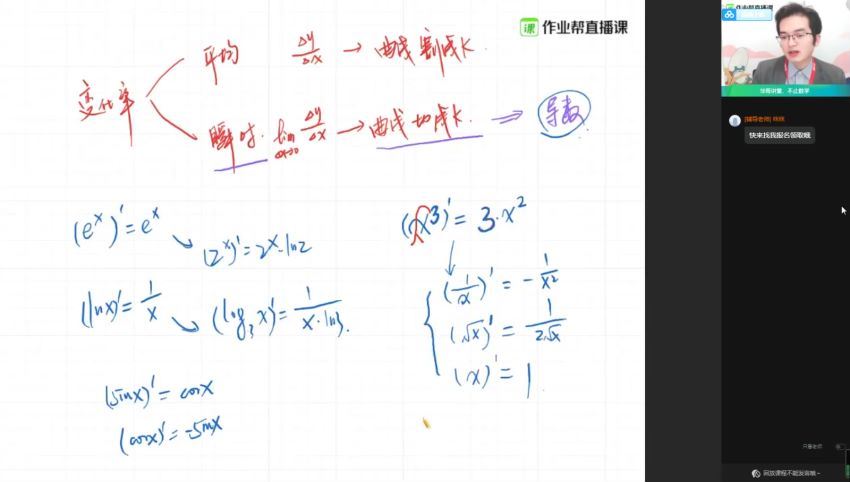 作业帮直播课
平均 Δy/Δx → 曲线割线k.
变化率
瞬时. lim Δx→0 Δy/Δx → 曲线切线k. ⇒ 导数
(e^x)' = e^x
(2^x)' = 2^x·ln2
(lnx)' = 1/x
(log₃x)' = 1/(x·ln3).
(sinx)' = cosx
(cosx)' = -sinx
(x³)' = 3·x²
(1/x)' = -1/x²
(√x)' = 1/(2√x)
(x)' = 1.
华哥讲堂，不止数学
[辅导老师] 咪咪
快来找我报名领取哦
只看老师
回放课程不能发言哦~